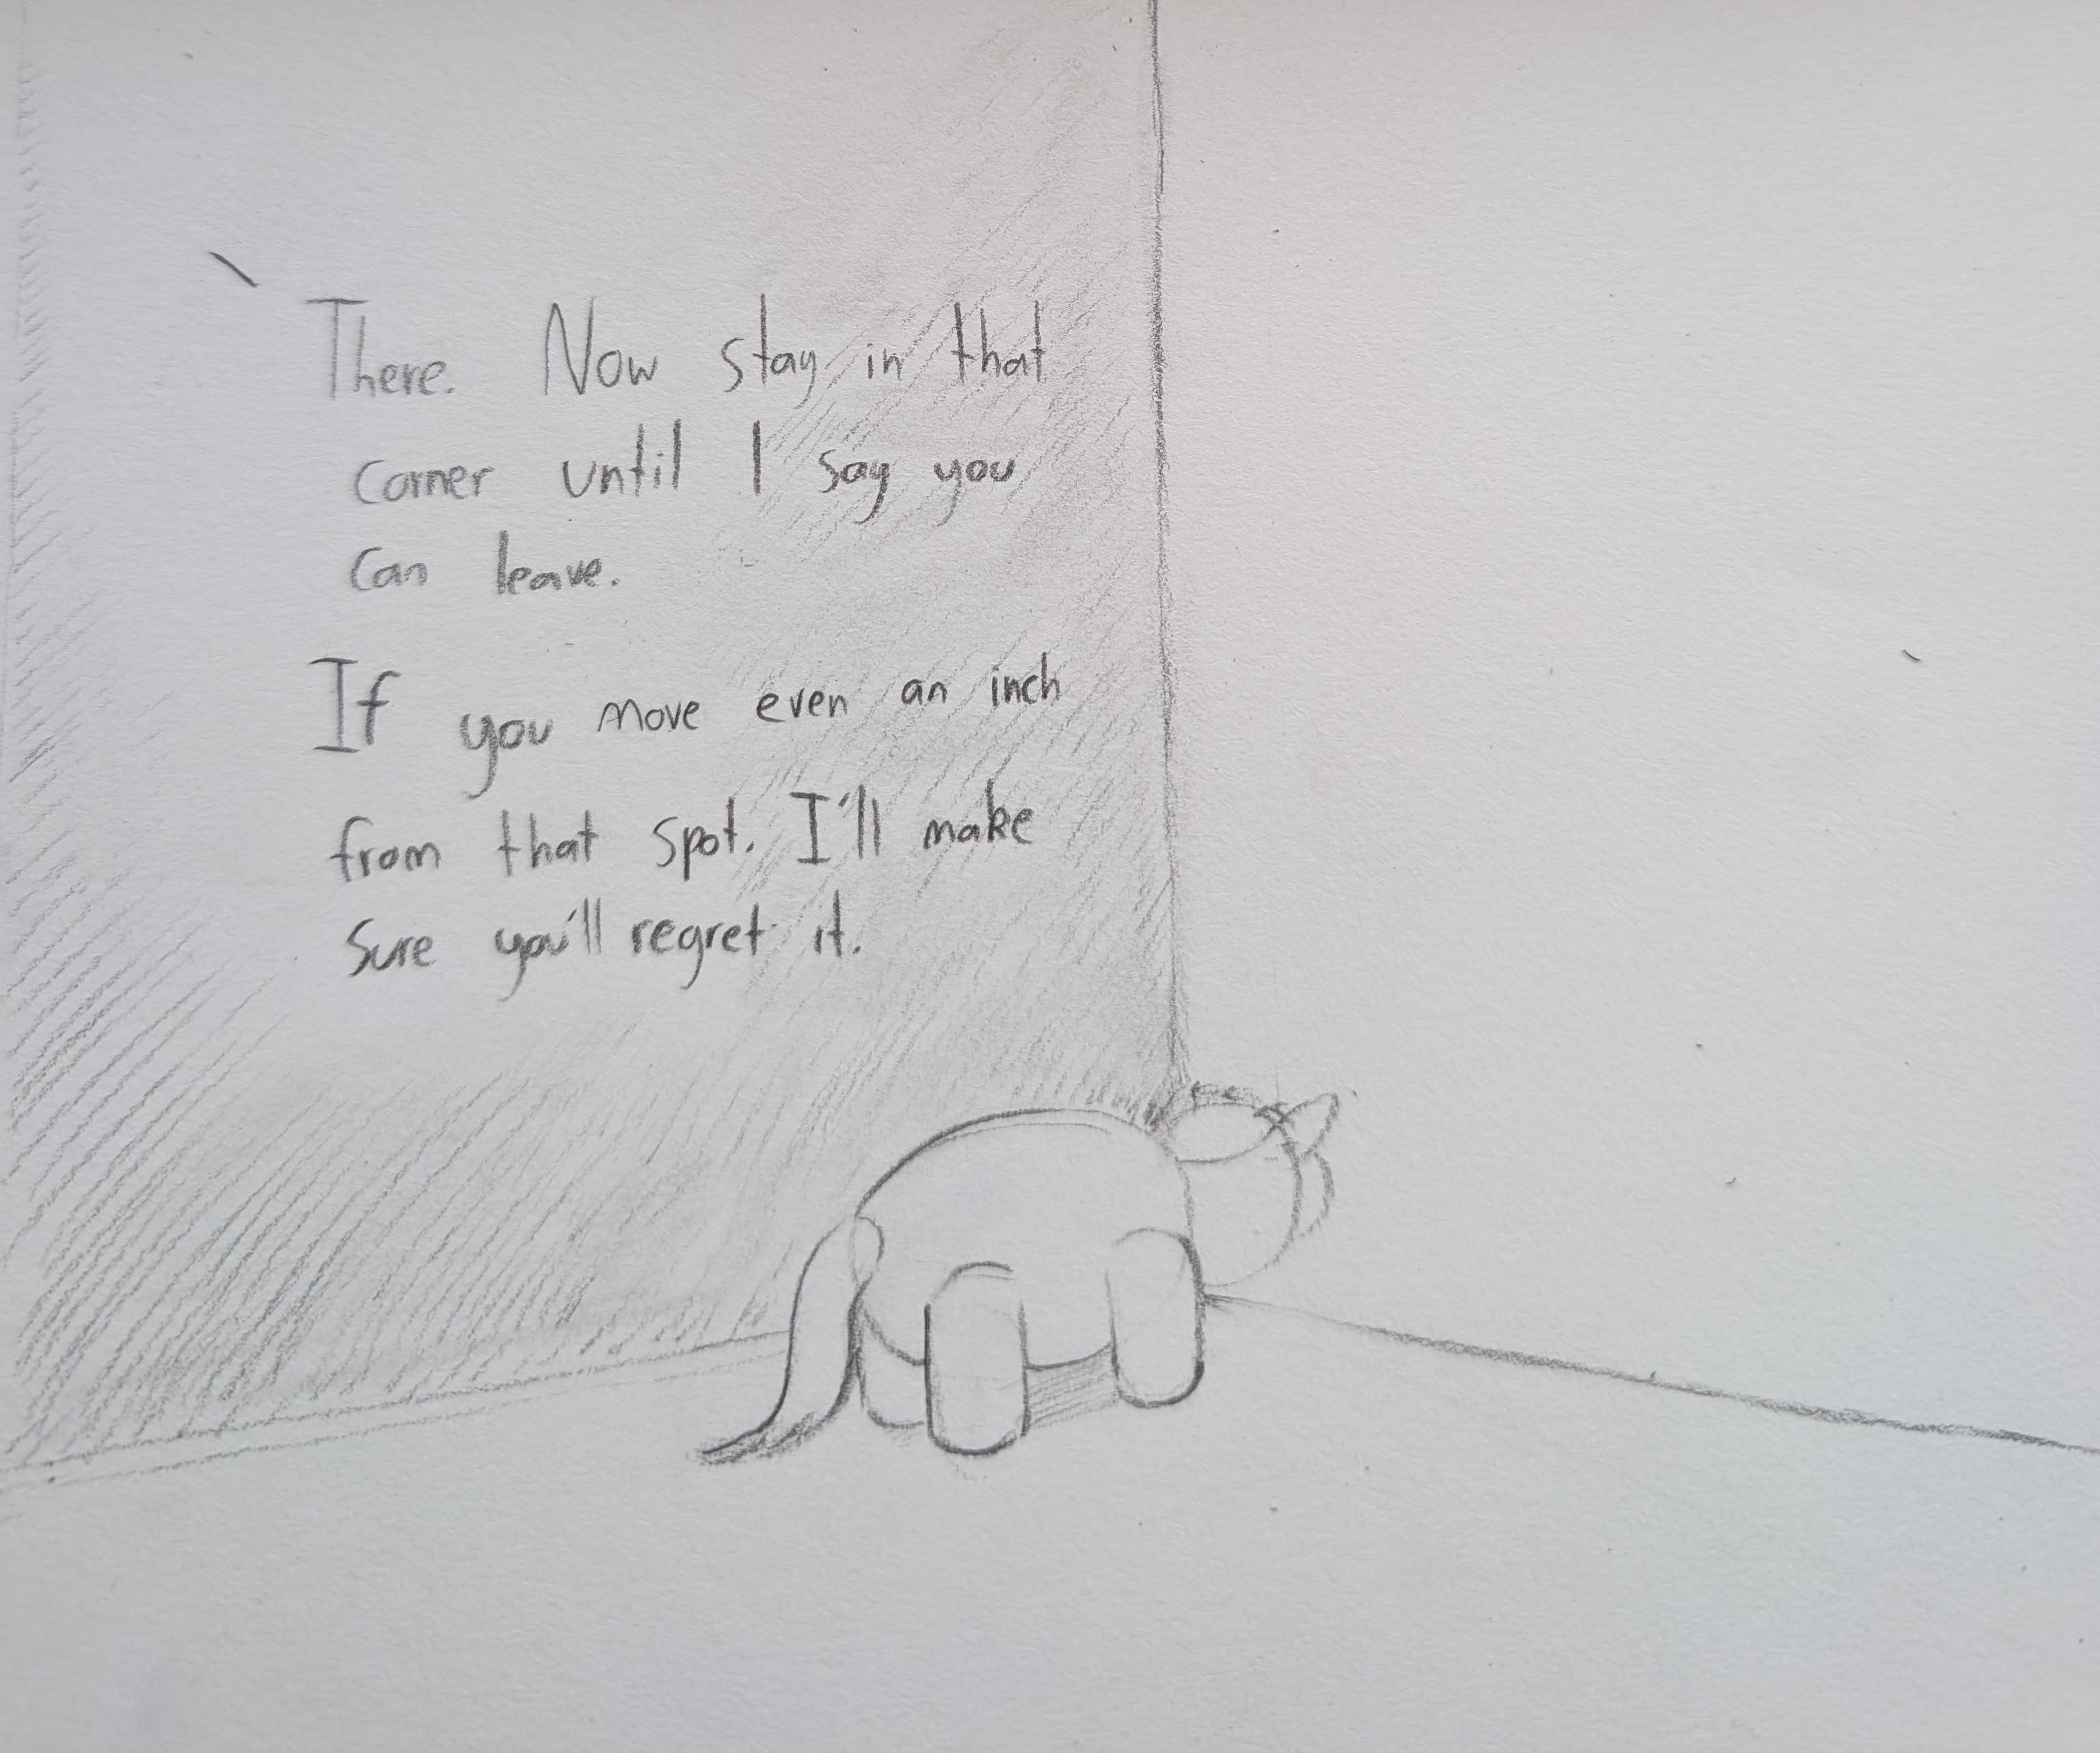 There. Now stay in that
corner until I say you
can leave.
If you move even an inch
from that spot. I'll make
sure you'll regret it.